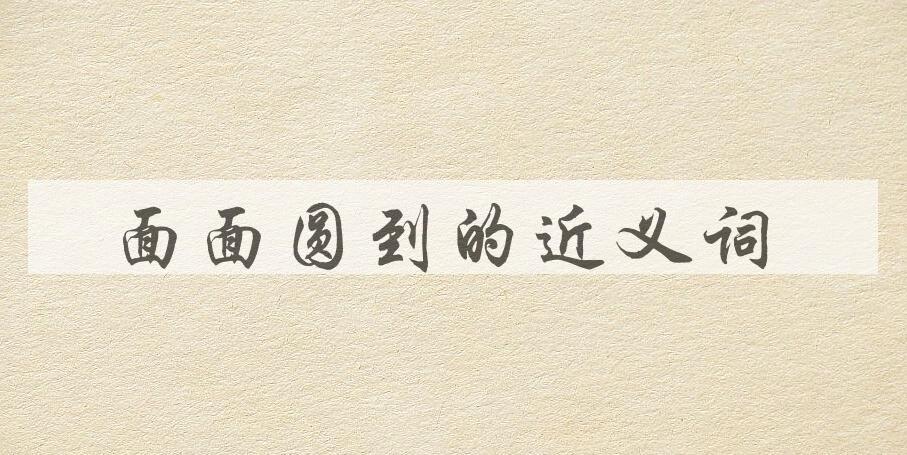 面面圆到的近义词